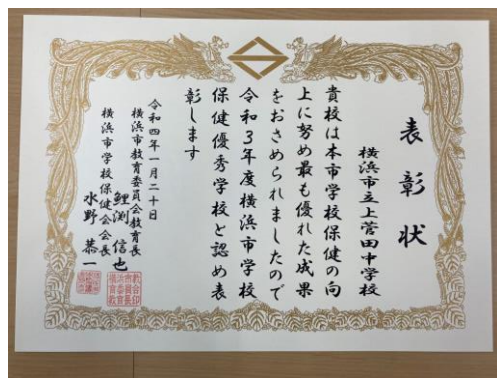 表彰状
横浜市立上菅田中学校
貴校は本市学校保健の向
上に努め最も優れた成果
をおさめられましたので
令和3年度横浜市学校
保健優秀学校と認め表
彰します
令和四年一月二十日
横浜市教育委員会教育長
鯉渕信也
横浜市学校保健会会長
水野恭一